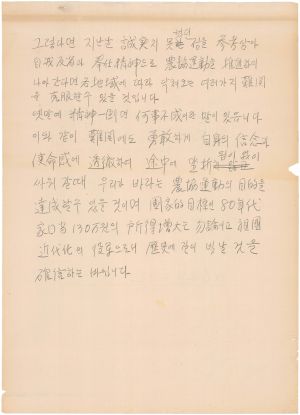 그렇다면 지난날 誠實치 못한 점을 參考삼아
自我反省과 奉仕精神으로 農協運動을 推進하여
나아간다면 各地域에 따라 닥쳐오는 여러가지 難關
을 克服할 수 있을 것입니다
옛말에 精神一到면 何事不成이란 말이 있읍니다
이와 같이 難關에도 勇敢하게 自身의 信念과
使命感에 透徹하여 途中에 좌절됨이 없이
싸워 갈때 우리가 바라는 農協運動의 目的을
達成할 수 있을 것이며 國家的 目標인 80年代
家口當 130万원의 所得增大는 勿論이고 祖國
近代化의 役軍으로서 歷史에 길이 빛날 것을
確信하는 바입니다